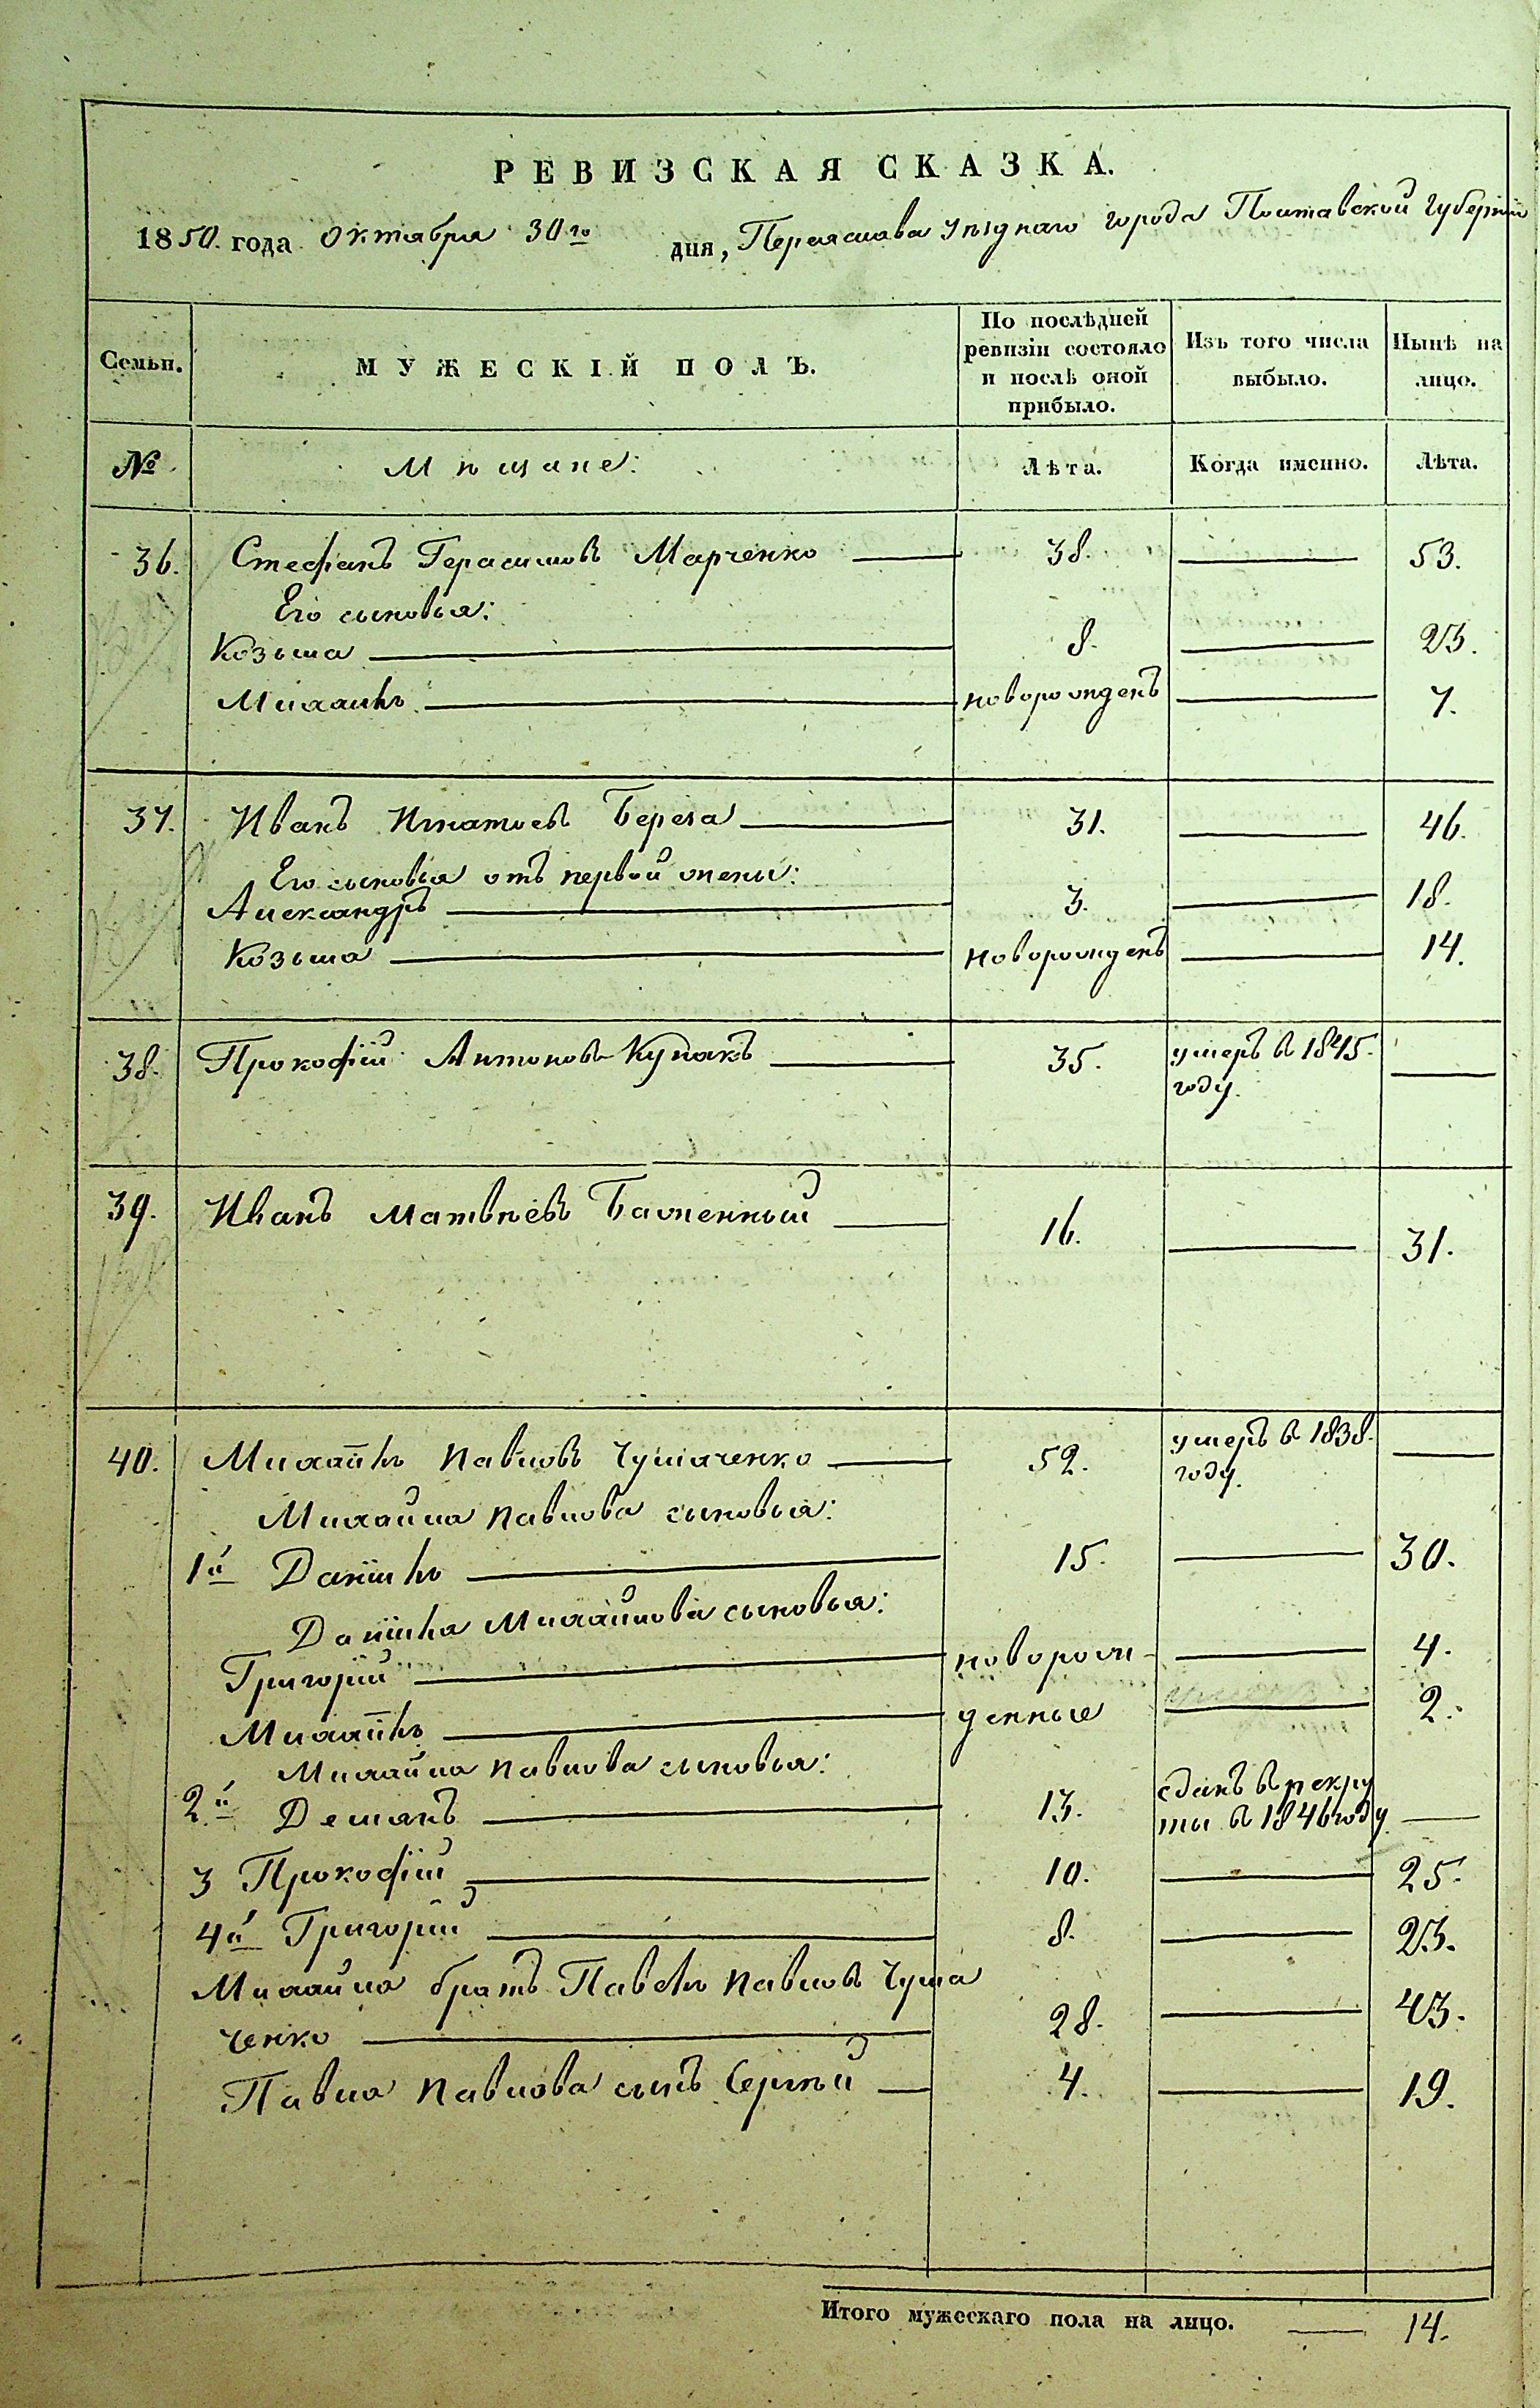 РЕВИЗСКАЯ СКАЗКА.
1850. года Октября 30го дня, Переяслава Уѣзднаго города Полтавской Губерніи
Семьи. МУЖЕСКІЙ ПОЛЪ. По послѣдней ревизіи состояло и послѣ оной прибыло. Изъ того числа выбыло. Нынѣ на лицо.
№ Мѣщане: Лѣта. Когда именно. Лѣта.
36. Стефанъ Герасимовъ Марченко 38. 53.
Его сыновья:
Козьма 8. 23.
Михаилъ новорожденъ 7.
37. Иванъ Игнатьевъ Береза 31. 46.
Его сыновья отъ первой жены:
Александръ 3. 18.
Козьма новорожденъ 14.
38. Прокофій Антоновъ 35. умеръ в 1845.
году.
39. Иванъ Матвѣевъ Баженный 16. 31.
40. Михаилъ Павловъ Чумаченко 52. умеръ в 1838.
году.
Михайла Павлова сыновья:
1й Даніилъ 15. 30.
Даніила Михайлова сыновья:
Григорій новорож- 4.
Михаилъ денные 2.
Михайла Павлова сыновья:
2.й Демянъ 13. сданъ в рекру
ты в 1846 году
3 Прокофій 10. 25.
4й Григорій 8. 23.
Михайла братъ Павелъ Павловъ Чума
ченко 28. 43.
Павла Павлова сынъ Сергѣй 4. 19.
Итого мужескаго пола на лицо. 14.